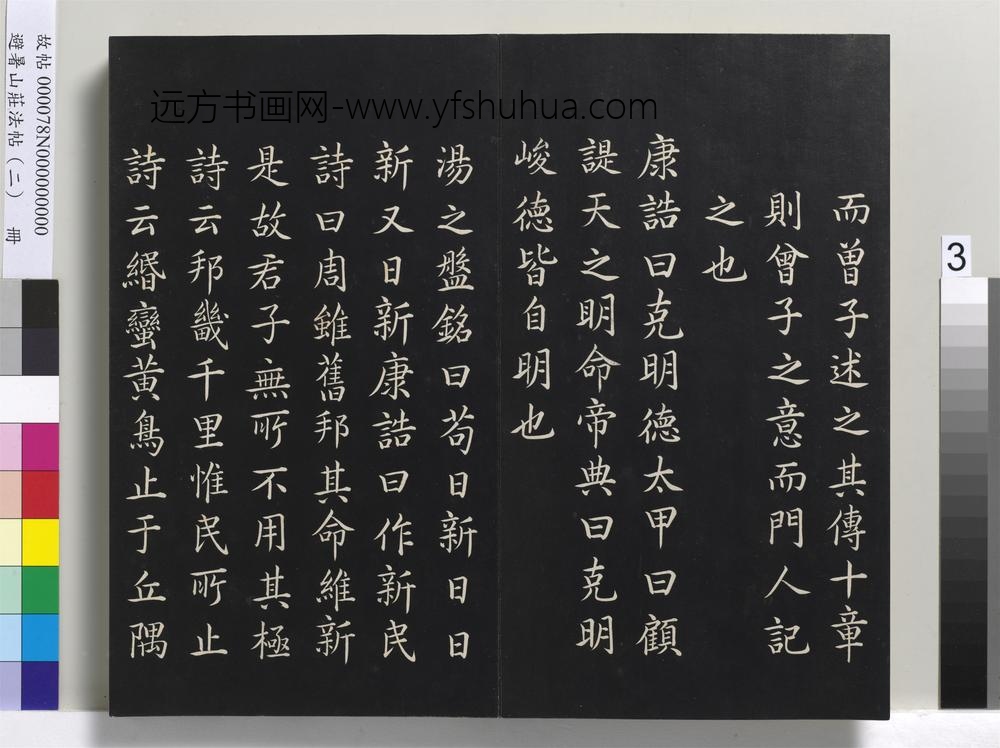 而曾子述之其傳十章
則曾子之意而門人記
之也
康誥曰克明德太甲曰顧
諟天之明命帝典曰克明
峻德皆自明也
湯之盤銘曰苟日新日日
新又日新康誥曰作新民
詩曰周雖舊邦其命維新
是故君子無所不用其極
詩云邦畿千里惟民所止
詩云緡蠻黃鳥止于丘隅
远方书画网-www.yfshuhua.com
故帖 000078N000000000
避暑山莊法帖（二） 冊
3